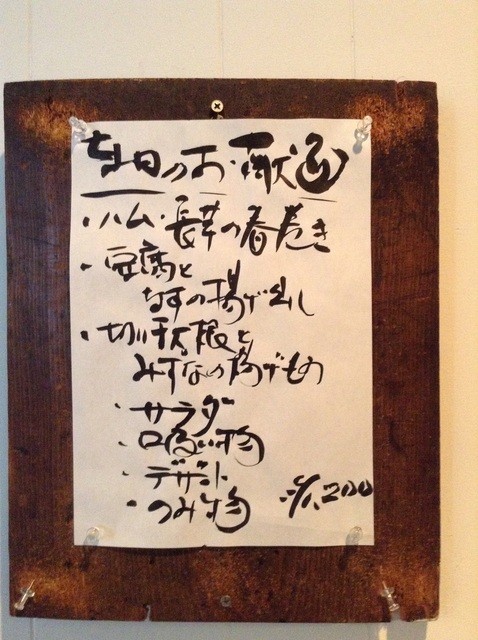 本日のお・献立
・ハム・長芋の春巻き
・豆腐と
なすの揚げ出し
・切り干大根と
みずなの揚げもの
・サラダ
・吸い物
・デザート
・のみ物
・¥1,200